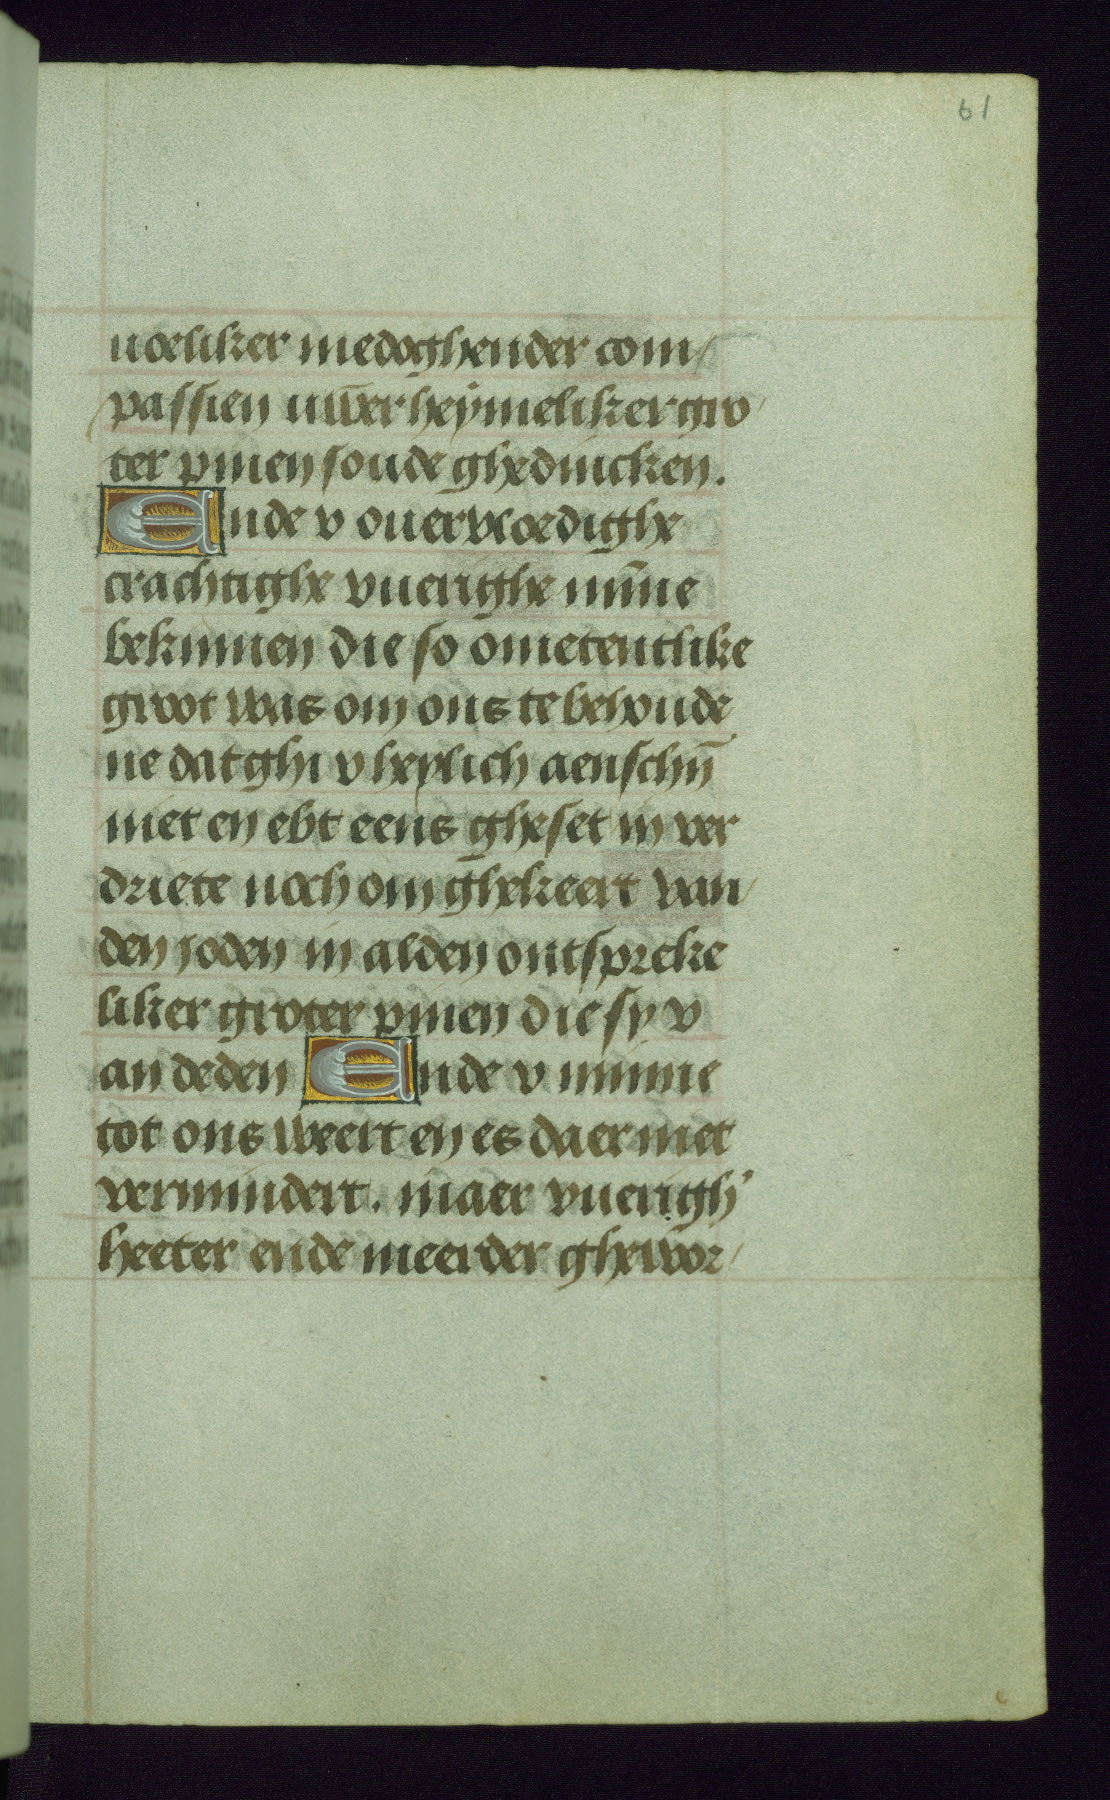 61
uoeliker medoghender com/
passien uw̄er heymeliker gro
ter pinen soude ghedincken.
Ende v ouervloedighe
crachtighe vuerighe mīne
bekinnen die so ometentlike
groot was om ons te behoude
ne dat ghi v heylich aenschȳ
niet en ebt eens gheset in ver
driete noch om ghekeert van/
den joden in alden ontsprcke
liker groter pinen die sy v
an deden Ende v minne
tot ons weert en es daer met
vermindert. maer vuerigh'
heeter ende meerder ghewor/